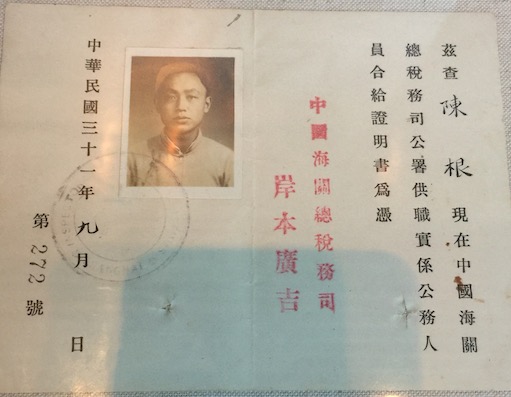 茲查陳根現在中國海關
總稅務司公署供職實係公務人
員合給證明書為憑
中國海關總稅務司
岸本廣吉
中華民國三十一年九月 日
第272號